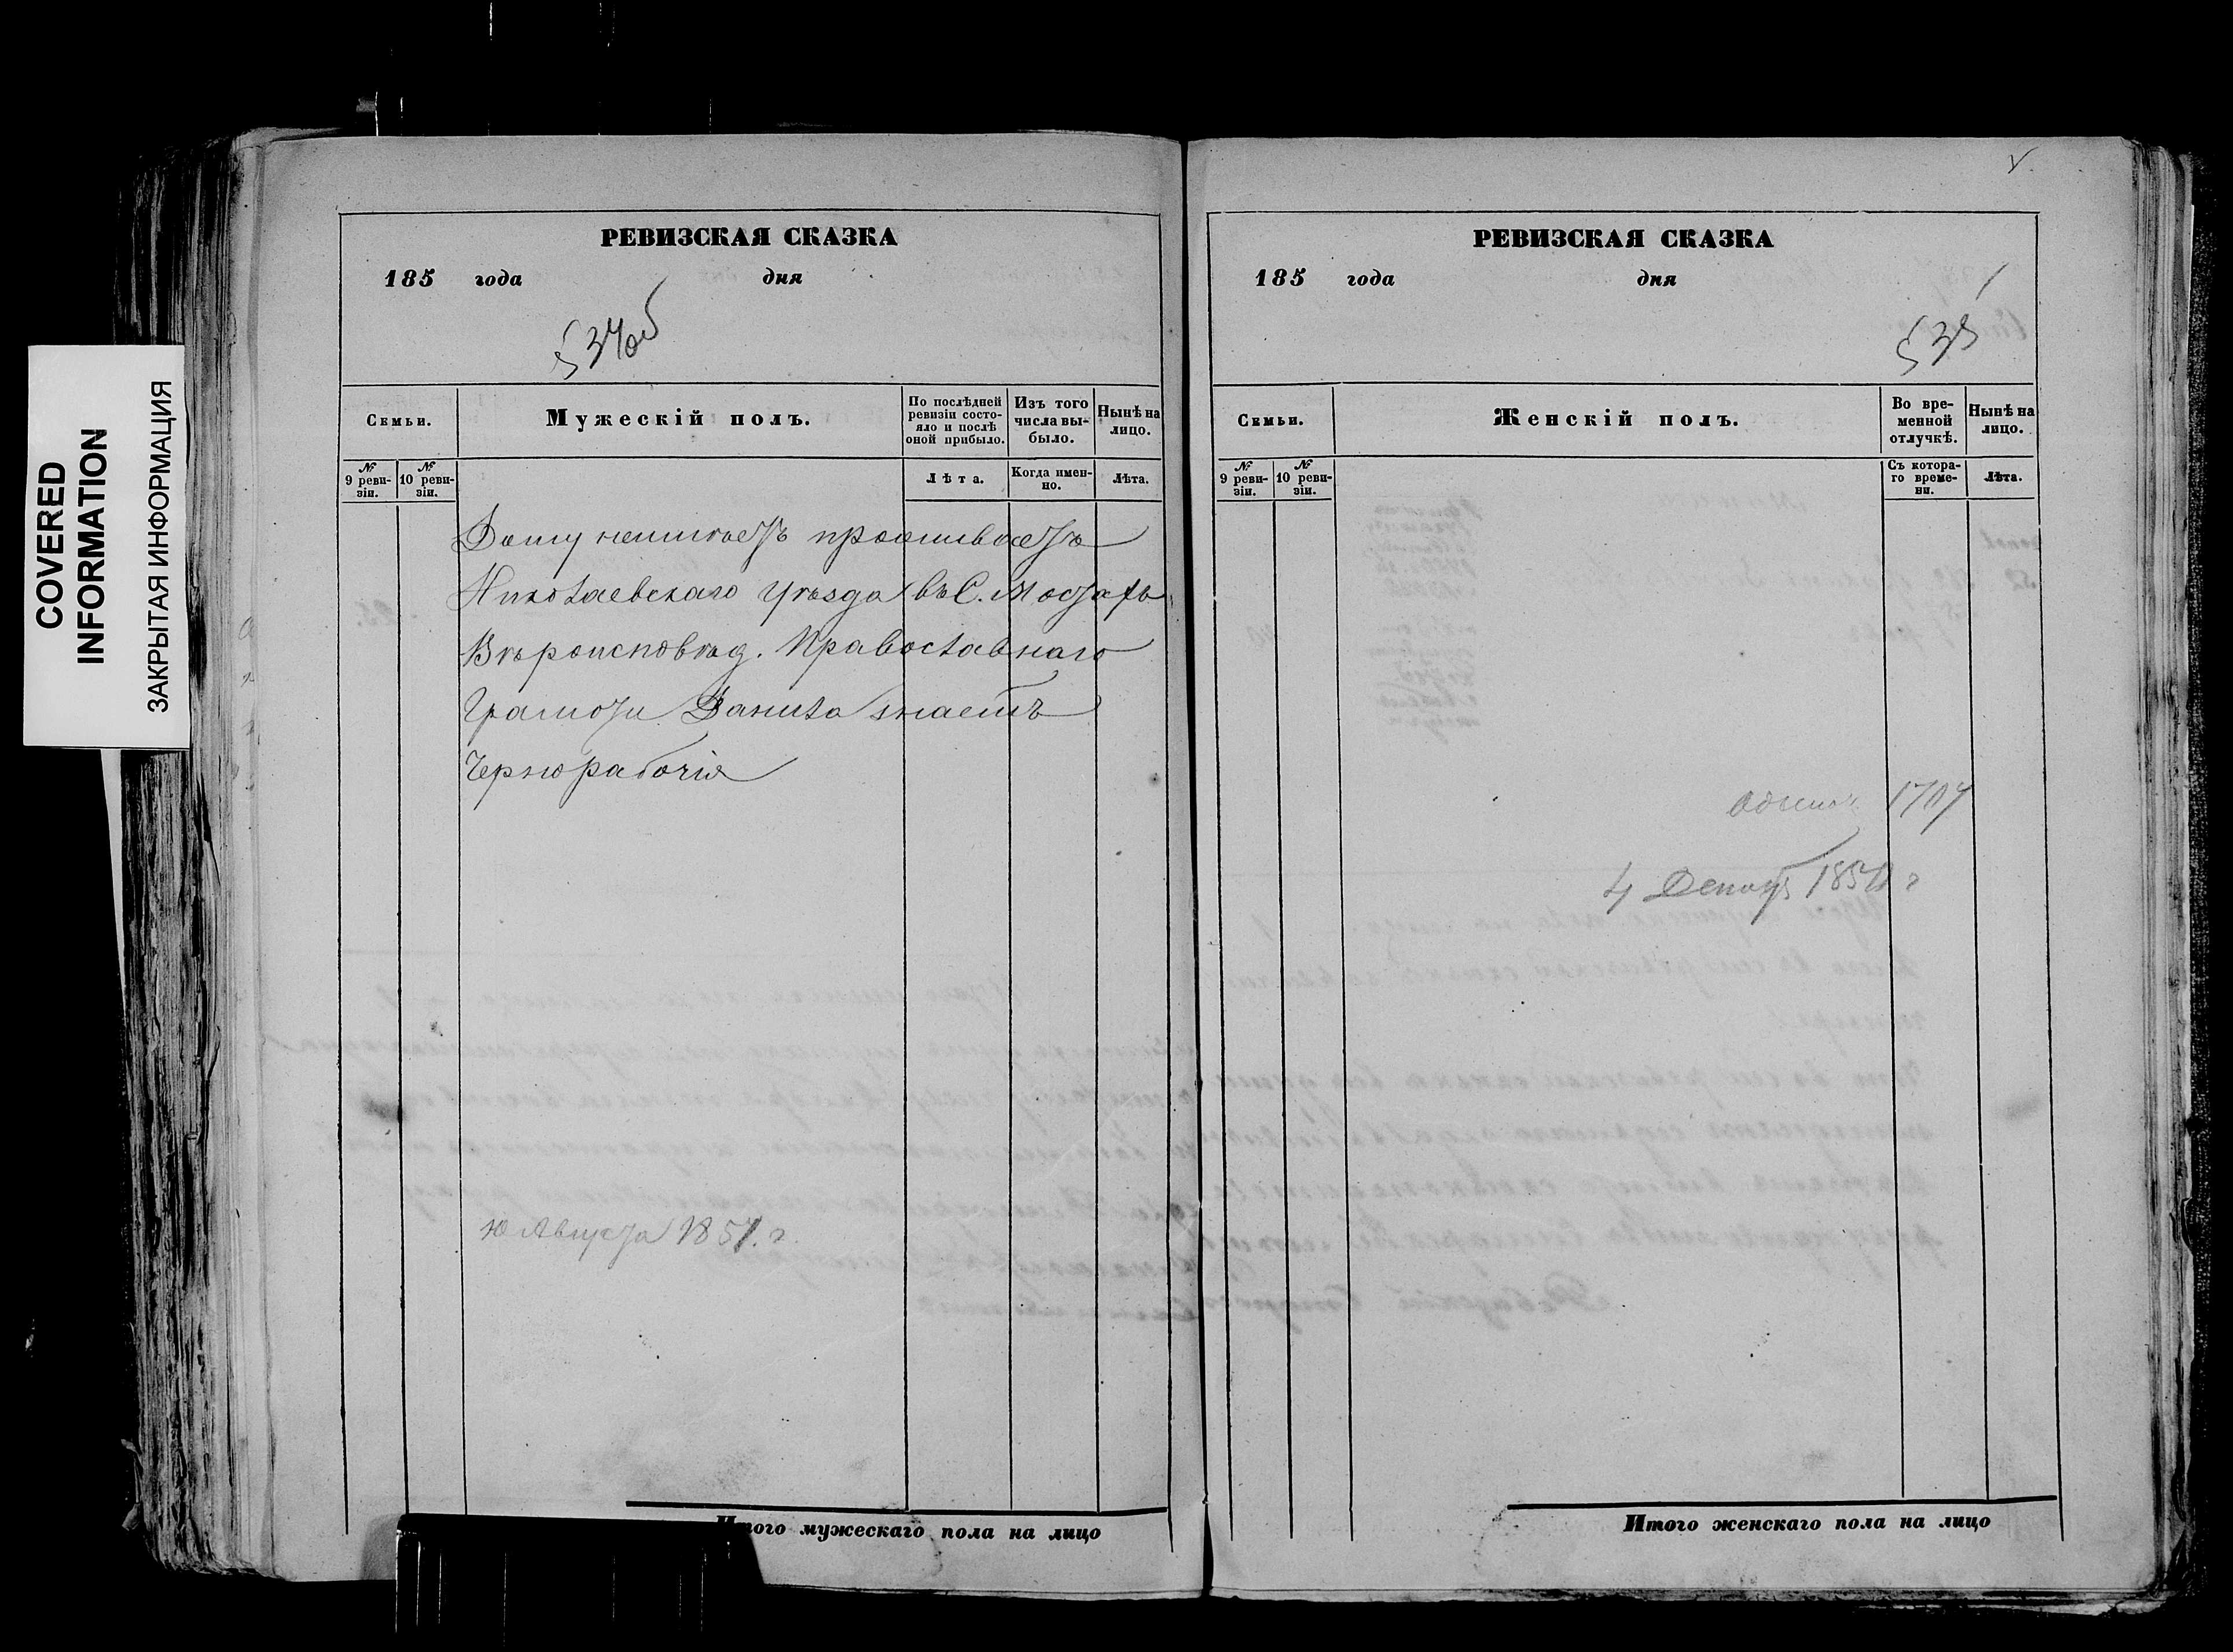 COVERED
INFORMATION
ЗАКРЫТАЯ ИНФОРМАЦИЯ
РЕВИЗСКАЯ СКАЗКА
185 года дня
534об
Семьи.
Мужескій полъ.
По послѣдней ревизіи состояло и послѣ оной прибыло.
Изъ того числа выбыло.
Нынѣ на лицо.
№ 9 ревизіи.
№ 10 ревизіи.
Лѣта.
Когда именно.
Лѣта.
Дому неимѣетъ проживаетъ
Николаевскаго уѣзда въ С.
Вѣроисповѣд. Православнаго
Грамоти Данила знаетъ
Чернорабочія
Августа 185 г.
Итого мужескаго пола на лицо
РЕВИЗСКАЯ СКАЗКА
185 года дня
535
Семьи.
Женскій полъ.
Во временной отлучкѣ.
Нынѣ на лицо.
№ 9 ревизіи.
№ 10 ревизіи.
Съ котораго времени.
Лѣта.
4 185 г
Итого женскаго пола на лицо